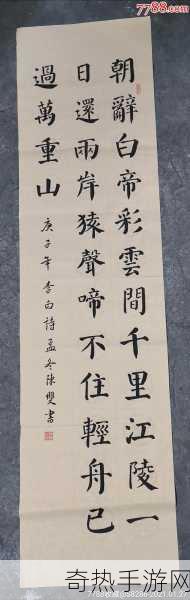 7788.com
朝辭白帝彩雲間千里江陵一
日還兩岸猿聲啼不住輕舟已
過萬重山
庚子年李白詩孟冬陳雙書
奇热手游网